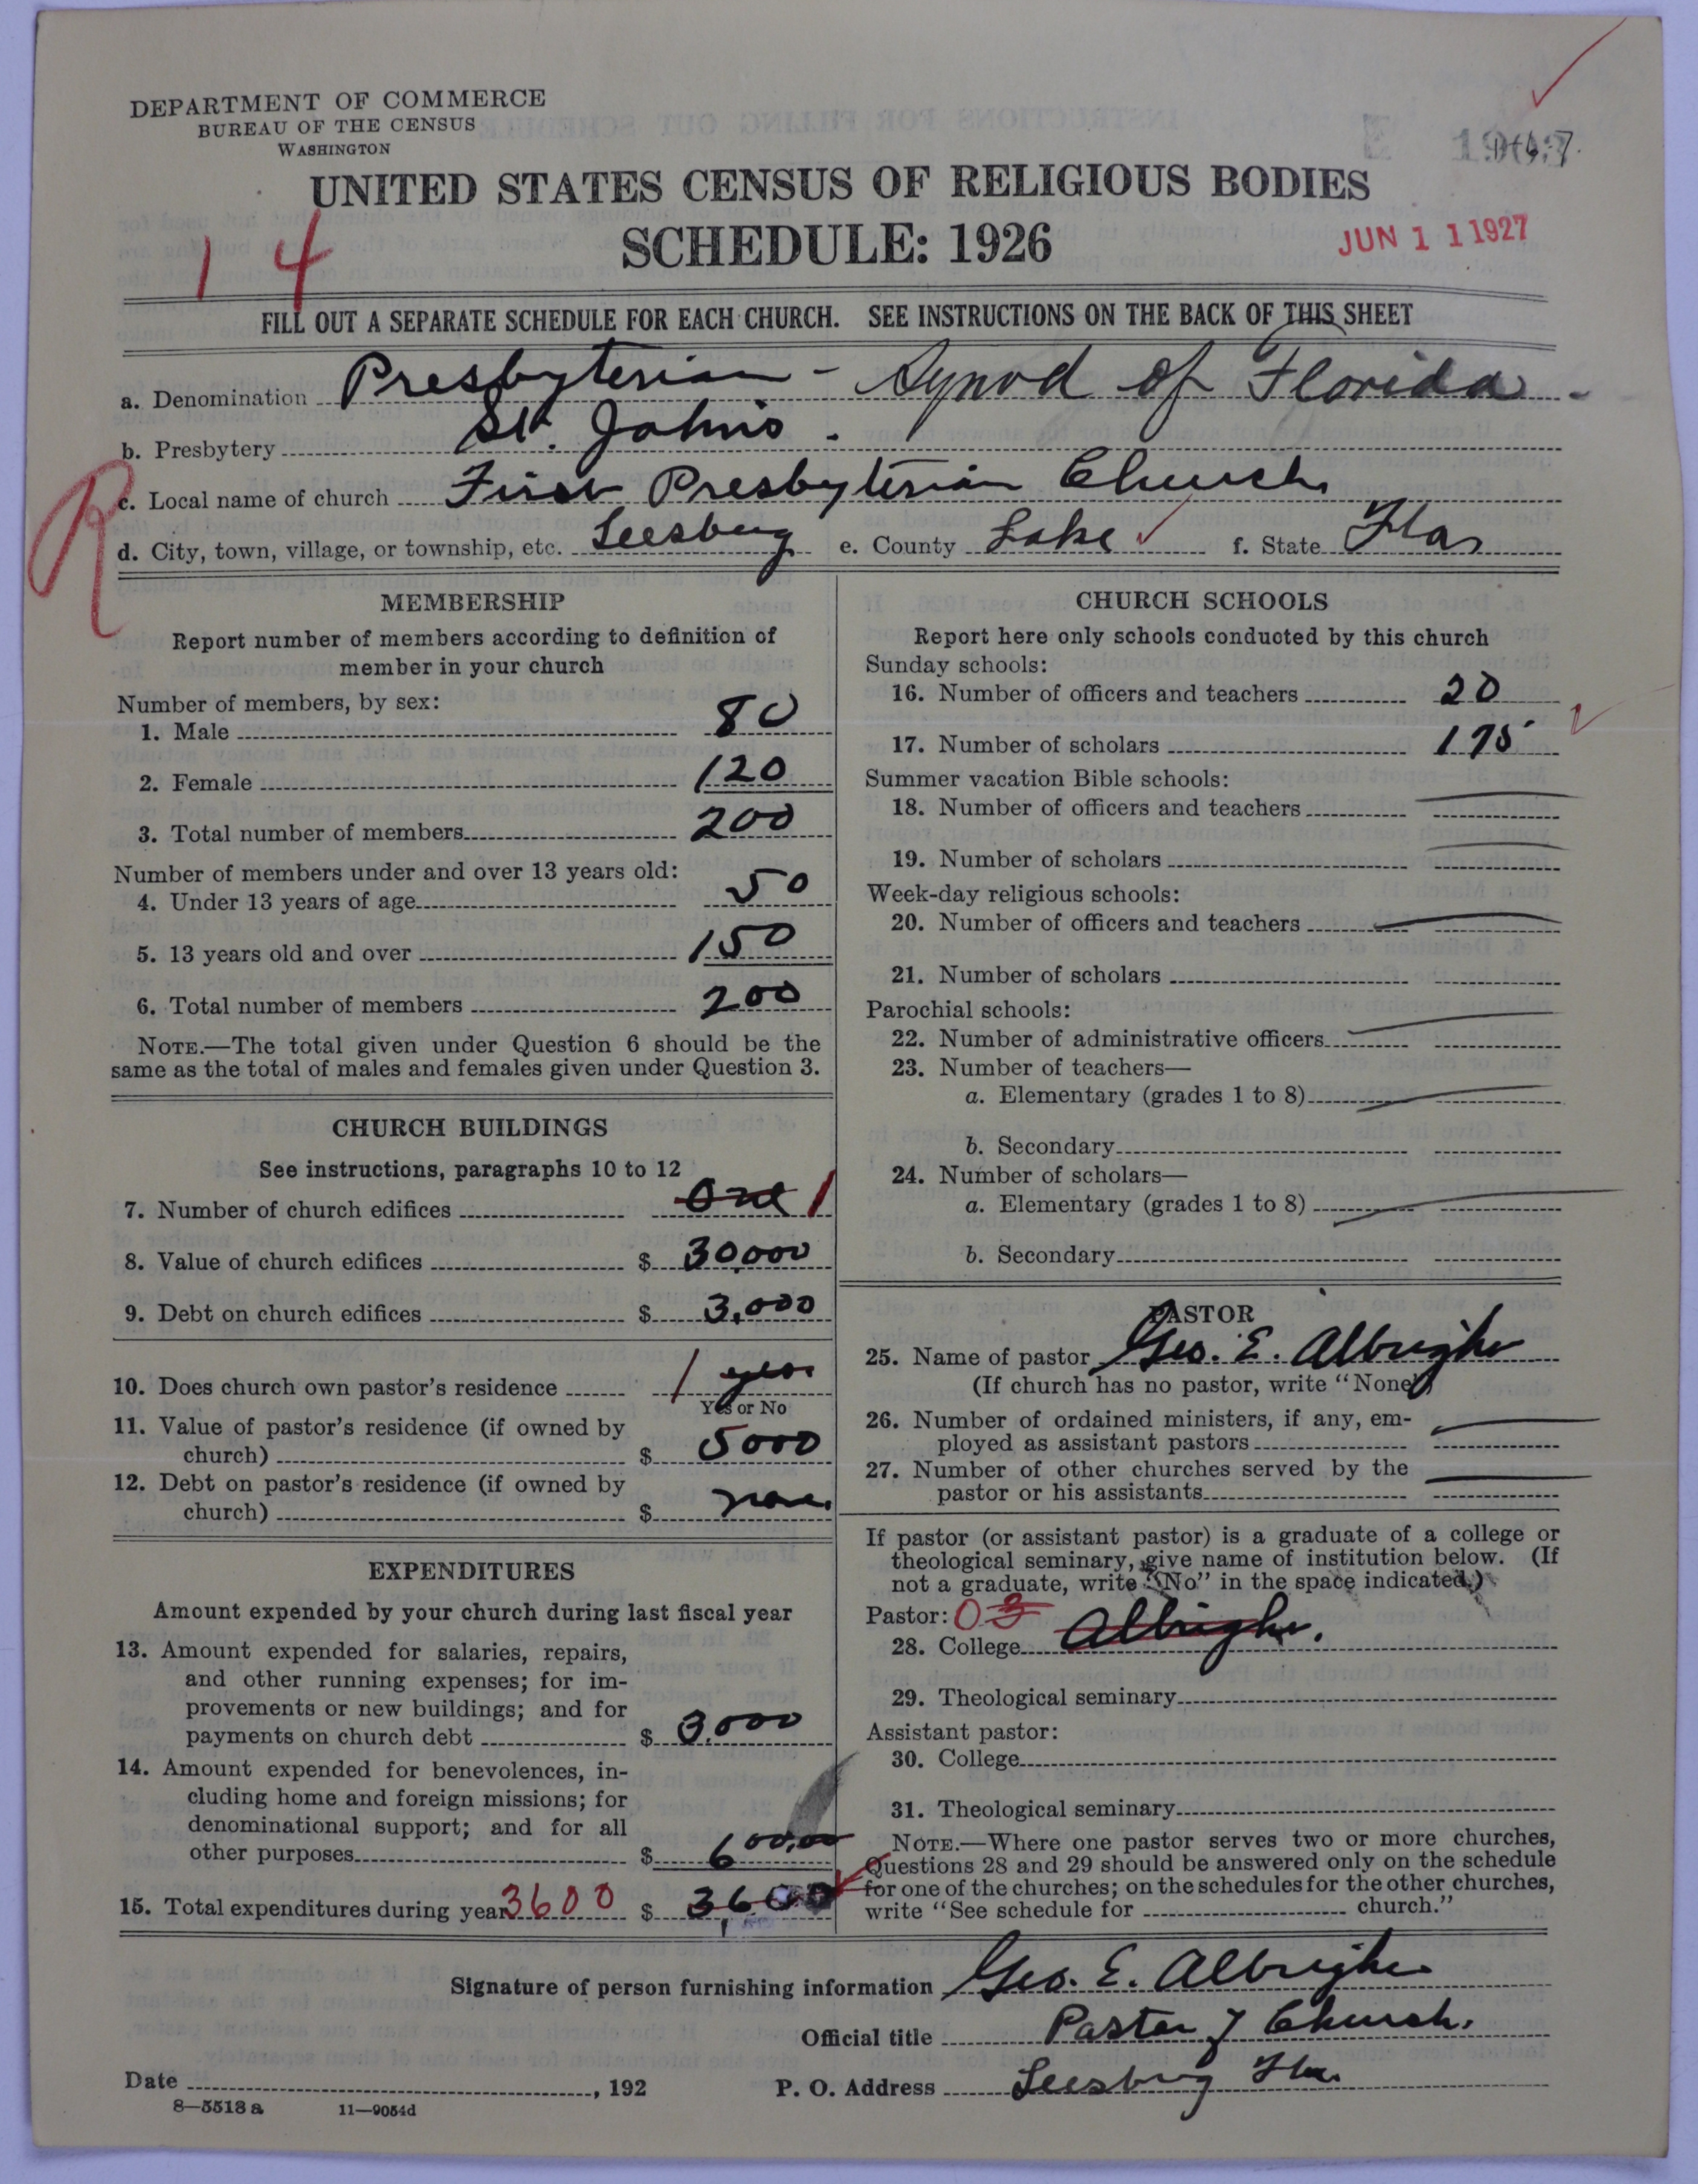 DEPARTMENT OF COMMERCE
BUREAU OF THE CENSUS
WASHINGTON
UNITED STATES CENSUS OF RELIGIOUS BODIES
SCHEDULE: 1926
14
JUN 11 1927
FILL OUT A SEPARATE SCHEDULE FOR EACH CHURCH. SEE INSTRUCTIONS ON THE BACK OF THIS SHEET
a. Denomination Presbyterian - Synod of Florida -
b. Presbytery St. Johns.
R
c. Local name of church First Presbyterian Church
d. City, town, village, or township, etc. Leesburg e. County Lake f. State Fla,
MEMBERSHIP
Report number of members according to definition of
member in your church
Number of members, by sex:
1. Male 80
2. Female 120
3. Total number of members 200
Number of members under and over 13 years old:
4. Under 13 years of age 50
5. 13 years old and over 150
6. Total number of members 200
NOTE.—The total given under Question 6 should be the
same as the total of males and females given under Question 3.
CHURCH BUILDINGS
See instructions, paragraphs 10 to 12
7. Number of church edifices One 1
8. Value of church edifices $ 30,000
9. Debt on church edifices $ 3,000
10. Does church own pastor's residence 1 yes
Yes or No
11. Value of pastor's residence (if owned by
church) $ 5000
12. Debt on pastor's residence (if owned by
church) $ none
EXPENDITURES
Amount expended by your church during last fiscal year
13. Amount expended for salaries, repairs,
and other running expenses; for im-
provements or new buildings; and for
payments on church debt $ 3,000
14. Amount expended for benevolences, in-
cluding home and foreign missions; for
denominational support; and for all
other purposes $ 600,00
15. Total expenditures during year 3600 $ 3,600
CHURCH SCHOOLS
Report here only schools conducted by this church
Sunday schools:
16. Number of officers and teachers 20
17. Number of scholars 175
Summer vacation Bible schools:
18. Number of officers and teachers
19. Number of scholars
Week-day religious schools:
20. Number of officers and teachers
21. Number of scholars
Parochial schools:
22. Number of administrative officers
23. Number of teachers—
a. Elementary (grades 1 to 8)
b. Secondary
24. Number of scholars—
a. Elementary (grades 1 to 8)
b. Secondary
PASTOR
25. Name of pastor Geo. E. Albright
(If church has no pastor, write "None")
26. Number of ordained ministers, if any, em-
ployed as assistant pastors
27. Number of other churches served by the
pastor or his assistants
If pastor (or assistant pastor) is a graduate of a college or
theological seminary, give name of institution below. (If
not a graduate, write "No" in the space indicated.)
Pastor: 03
28. College Albright.
29. Theological seminary
Assistant pastor:
30. College
31. Theological seminary
NOTE.—Where one pastor serves two or more churches,
Questions 28 and 29 should be answered only on the schedule
for one of the churches; on the schedules for the other churches,
write "See schedule for church."
Signature of person furnishing information Geo. E. Albright
Official title Pastor of Church.
Date , 192 P. O. Address Leesburg Fla.
8—5518 a 11—9054d